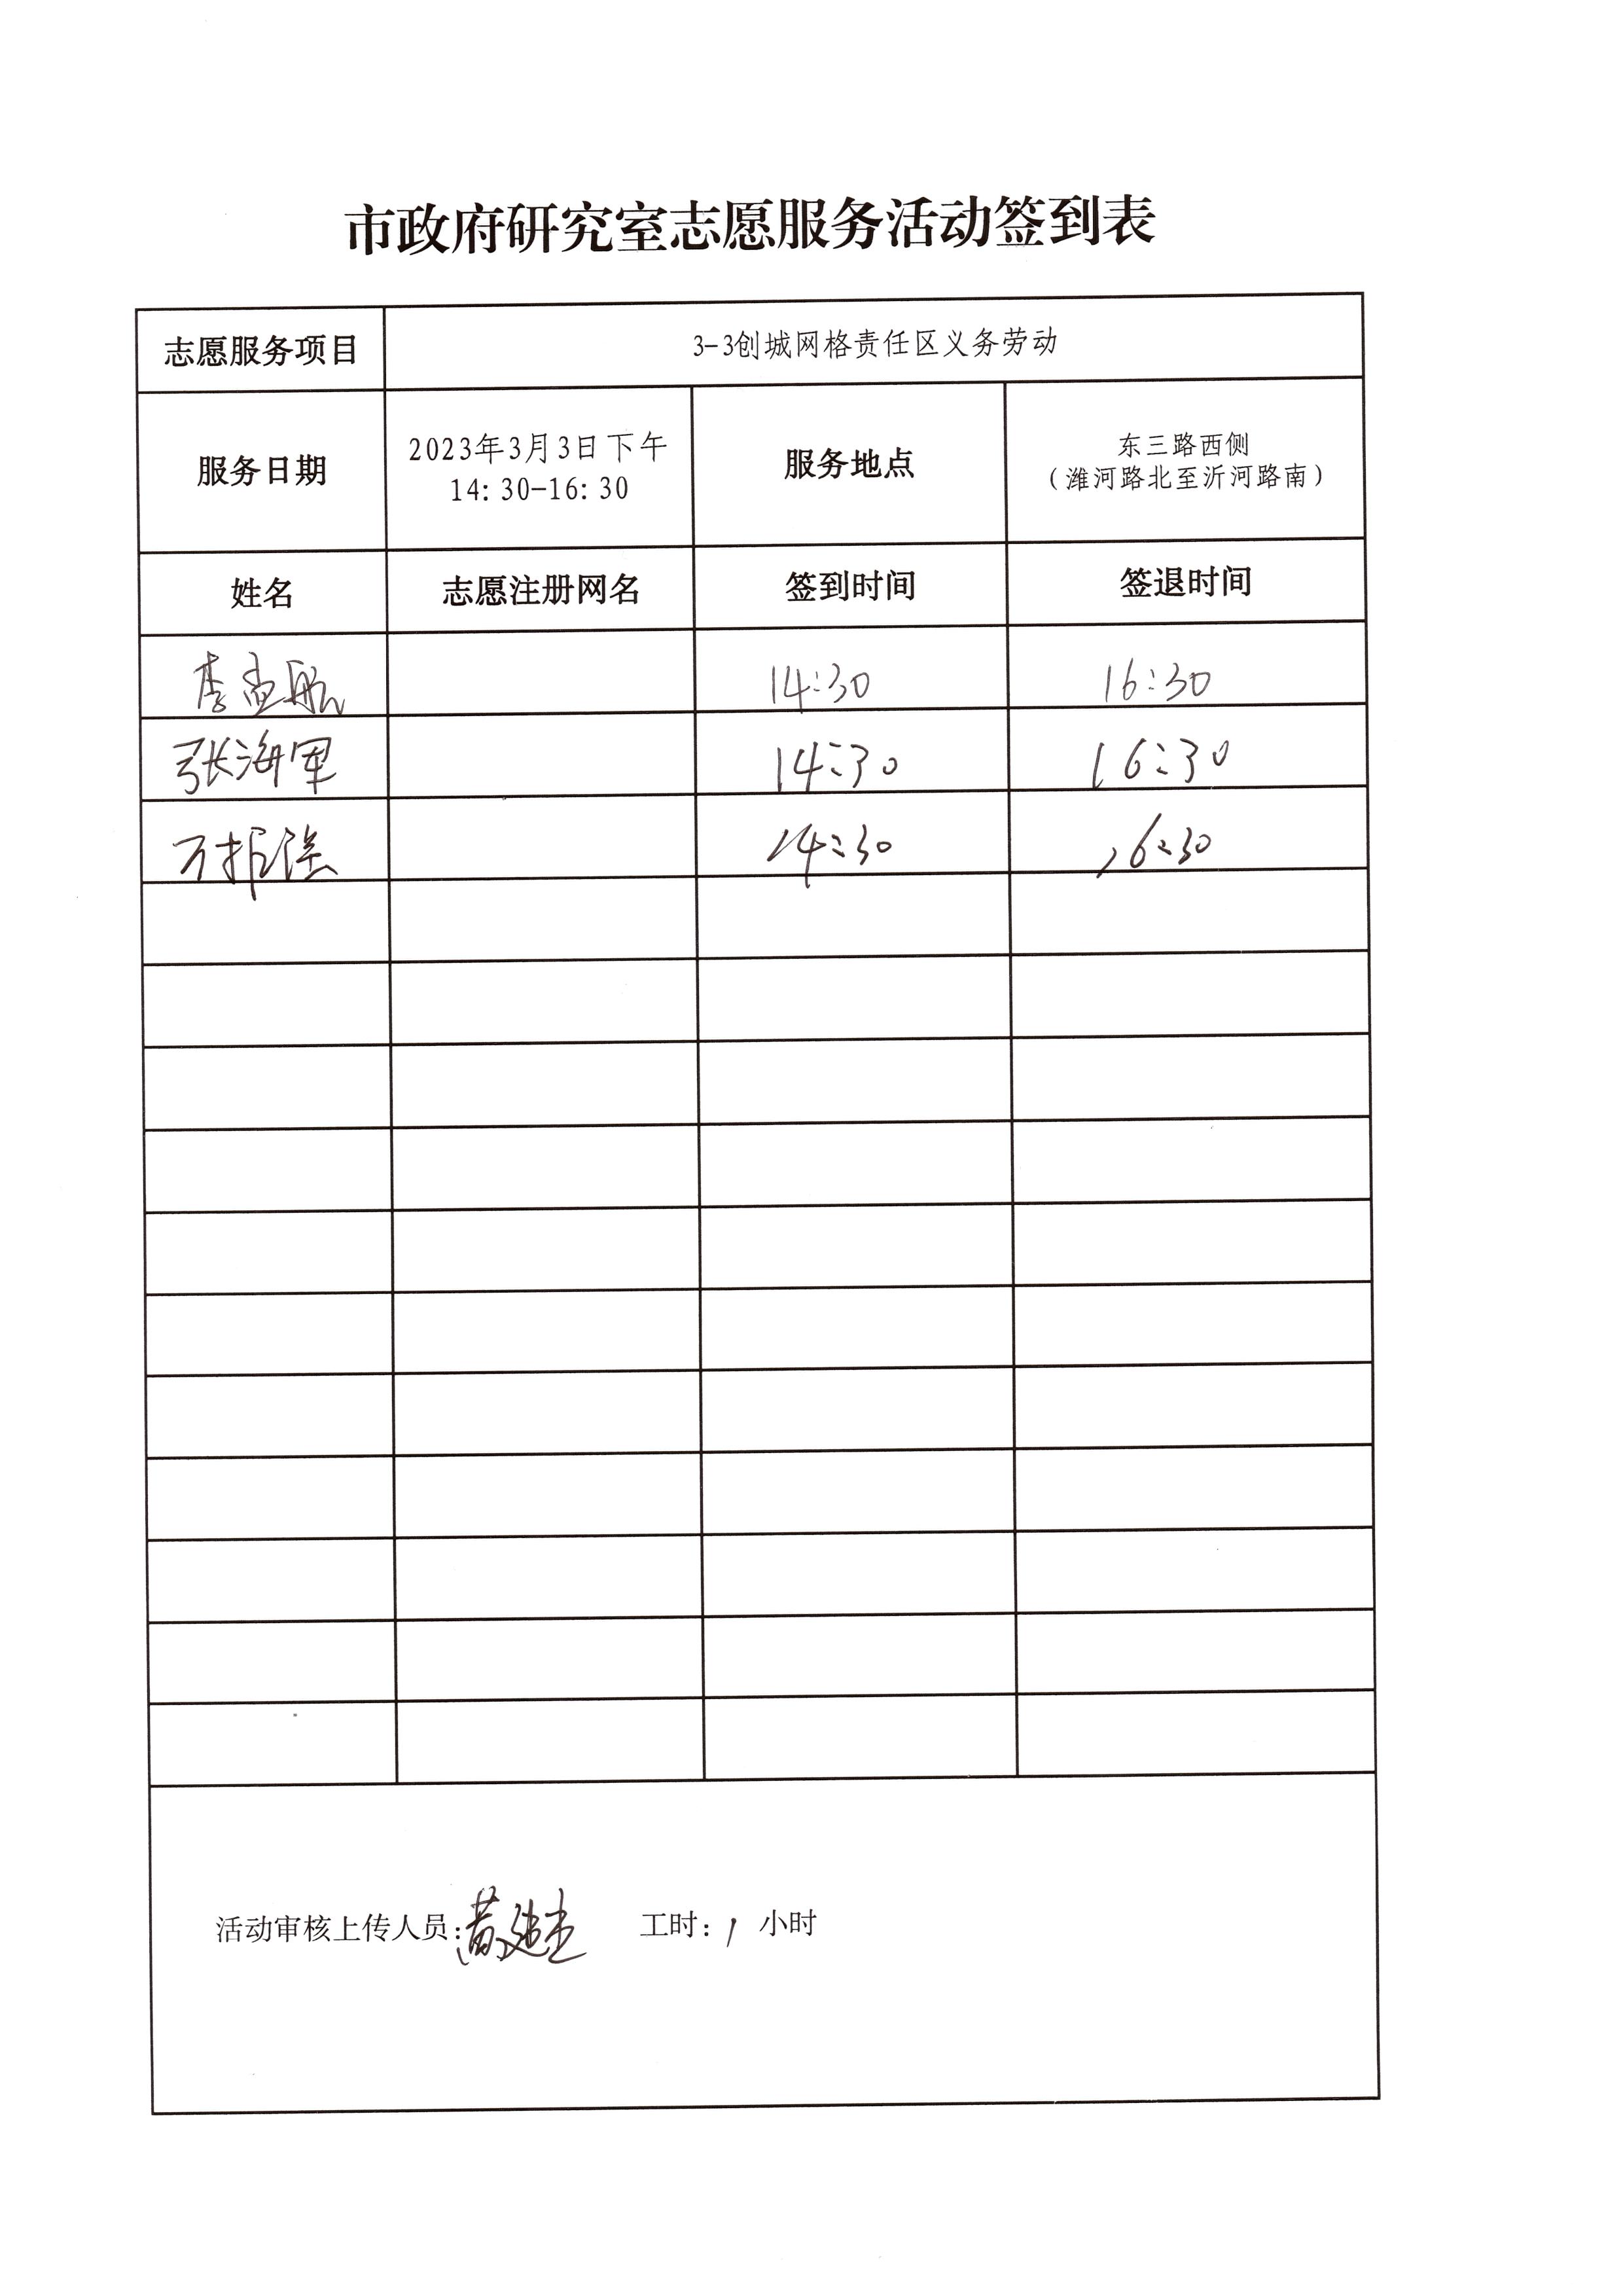 市政府研究室志愿服务活动签到表
志愿服务项目 3-3创城网格责任区义务劳动
服务日期 2023年3月3日下午 14:30-16:30 服务地点 东三路西侧 （潍河路北至沂河路南）
姓名 志愿注册网名 签到时间 签退时间
李孟航 14:30 16:30
张海军 14:30 16:30
万 14:30 16:30
活动审核上传人员: 黄 工时: 1 小时